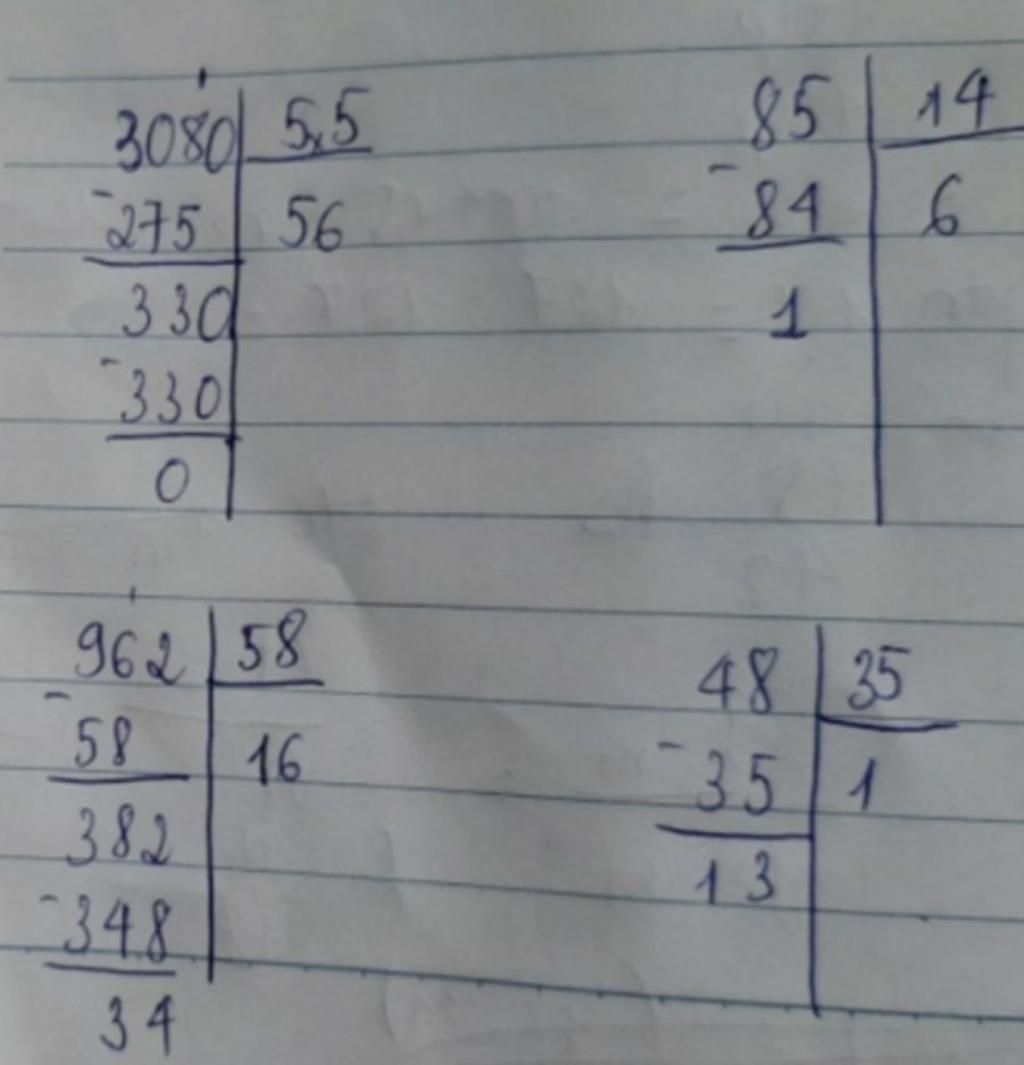 3080 5,5
-275 56
330
-330
0
85 14
-84 6
1
962 58
-58 16
382
-348
34
48 35
-35 1
13